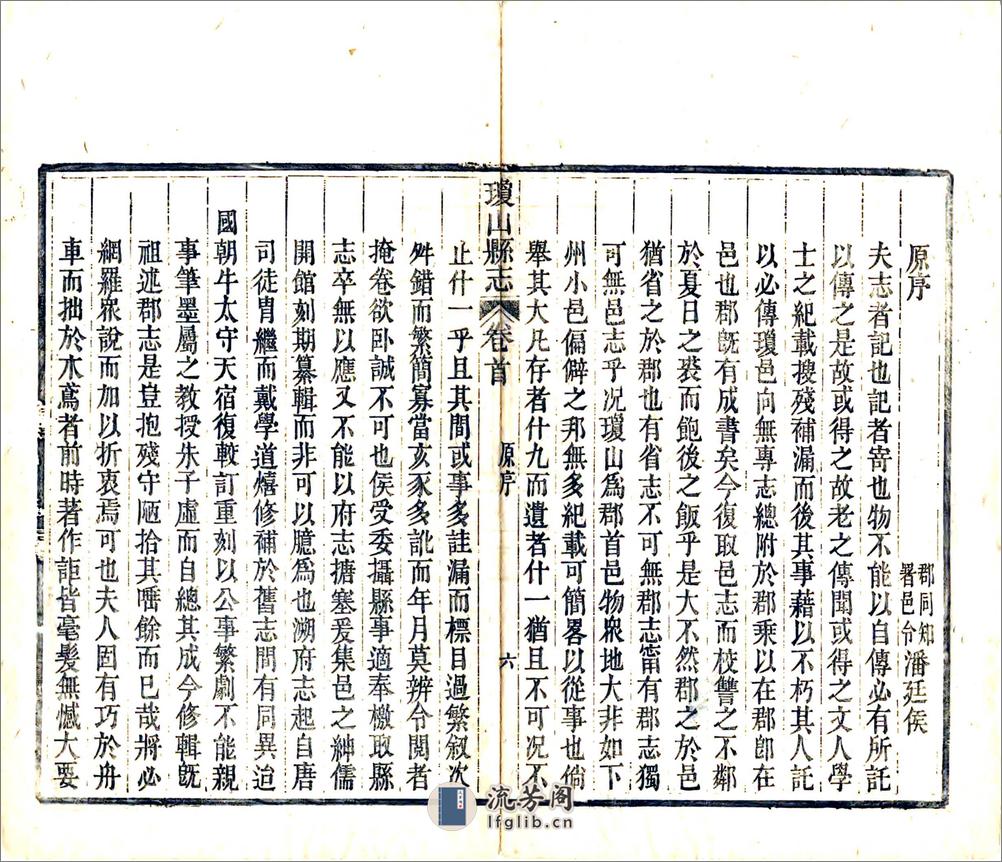 原序
郡同知
署邑令潘廷侯
夫志者記也記者寄也物不能以自傳必有所託
以傳之是故或得之故老之傳聞或得之文人學
士之紀載搜殘補漏而後其事藉以不朽其人託
以必傳瓊邑向無專志總附於郡乘以在郡卽在
邑也郡旣有成書矣今復取邑志而校讐之不鄰
於夏日之裘而飽後之飯乎是大不然郡之於邑
猶省之於郡也有省志不可無郡志甯有郡志獨
可無邑志乎况瓊山爲郡首邑物衆地大非如下
州小邑偏僻之邦無多紀載可簡畧以從事也倘
舉其大凡存者什九而遺者什一猶且不可况不
瓊山縣志 卷首 原序 六
止什一乎且其間或事多詿漏而標目過繁叙次
舛錯而繁簡寡當亥豕多訛而年月莫辨令閱者
掩卷欲卧誠不可也侯受委攝縣事適奉檄取縣
志卒無以應又不能以府志搪塞爰集邑之紳儒
開館刻期纂輯而非可以臆爲也溯府志起自唐
司徒胄繼而戴學道熺修補於舊志間有同異迨
國朝牛太守天宿復較訂重刻以公事繁劇不能親
事筆墨屬之教授朱子虛而自總其成今修輯旣
祖述郡志是豈抱殘守陋拾其唾餘而巳哉將必
網羅衆說而加以折衷焉可也夫人固有巧於舟
車而拙於木鳶者前時著作詎皆毫髮無憾大要
流芳阁
lfglib.cn